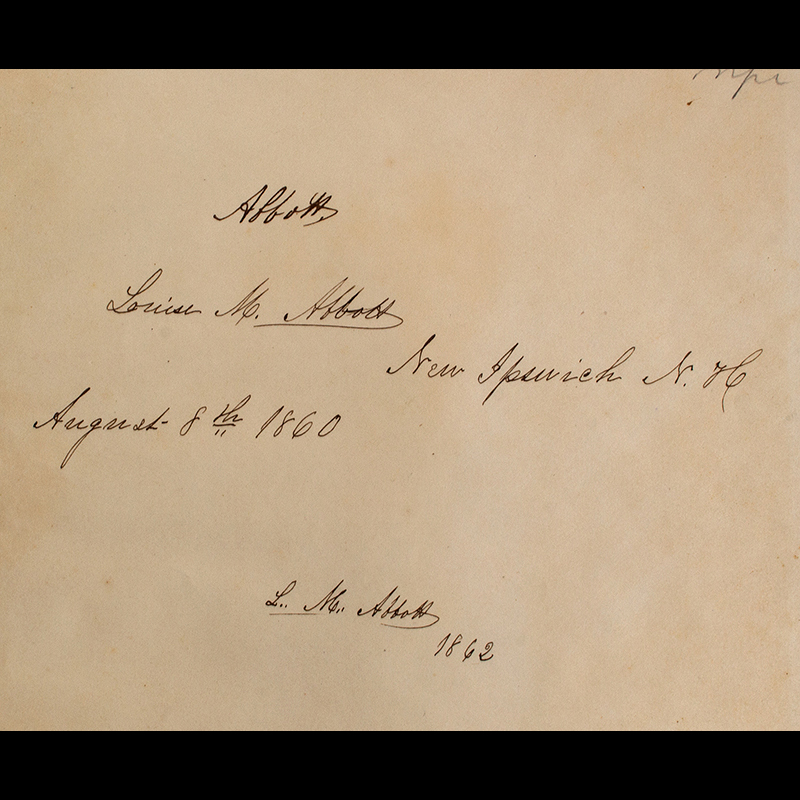 Abbott
Louise M. Abbott
New Ipswich N. H
August 8th 1860
L. M. Abbott
1862